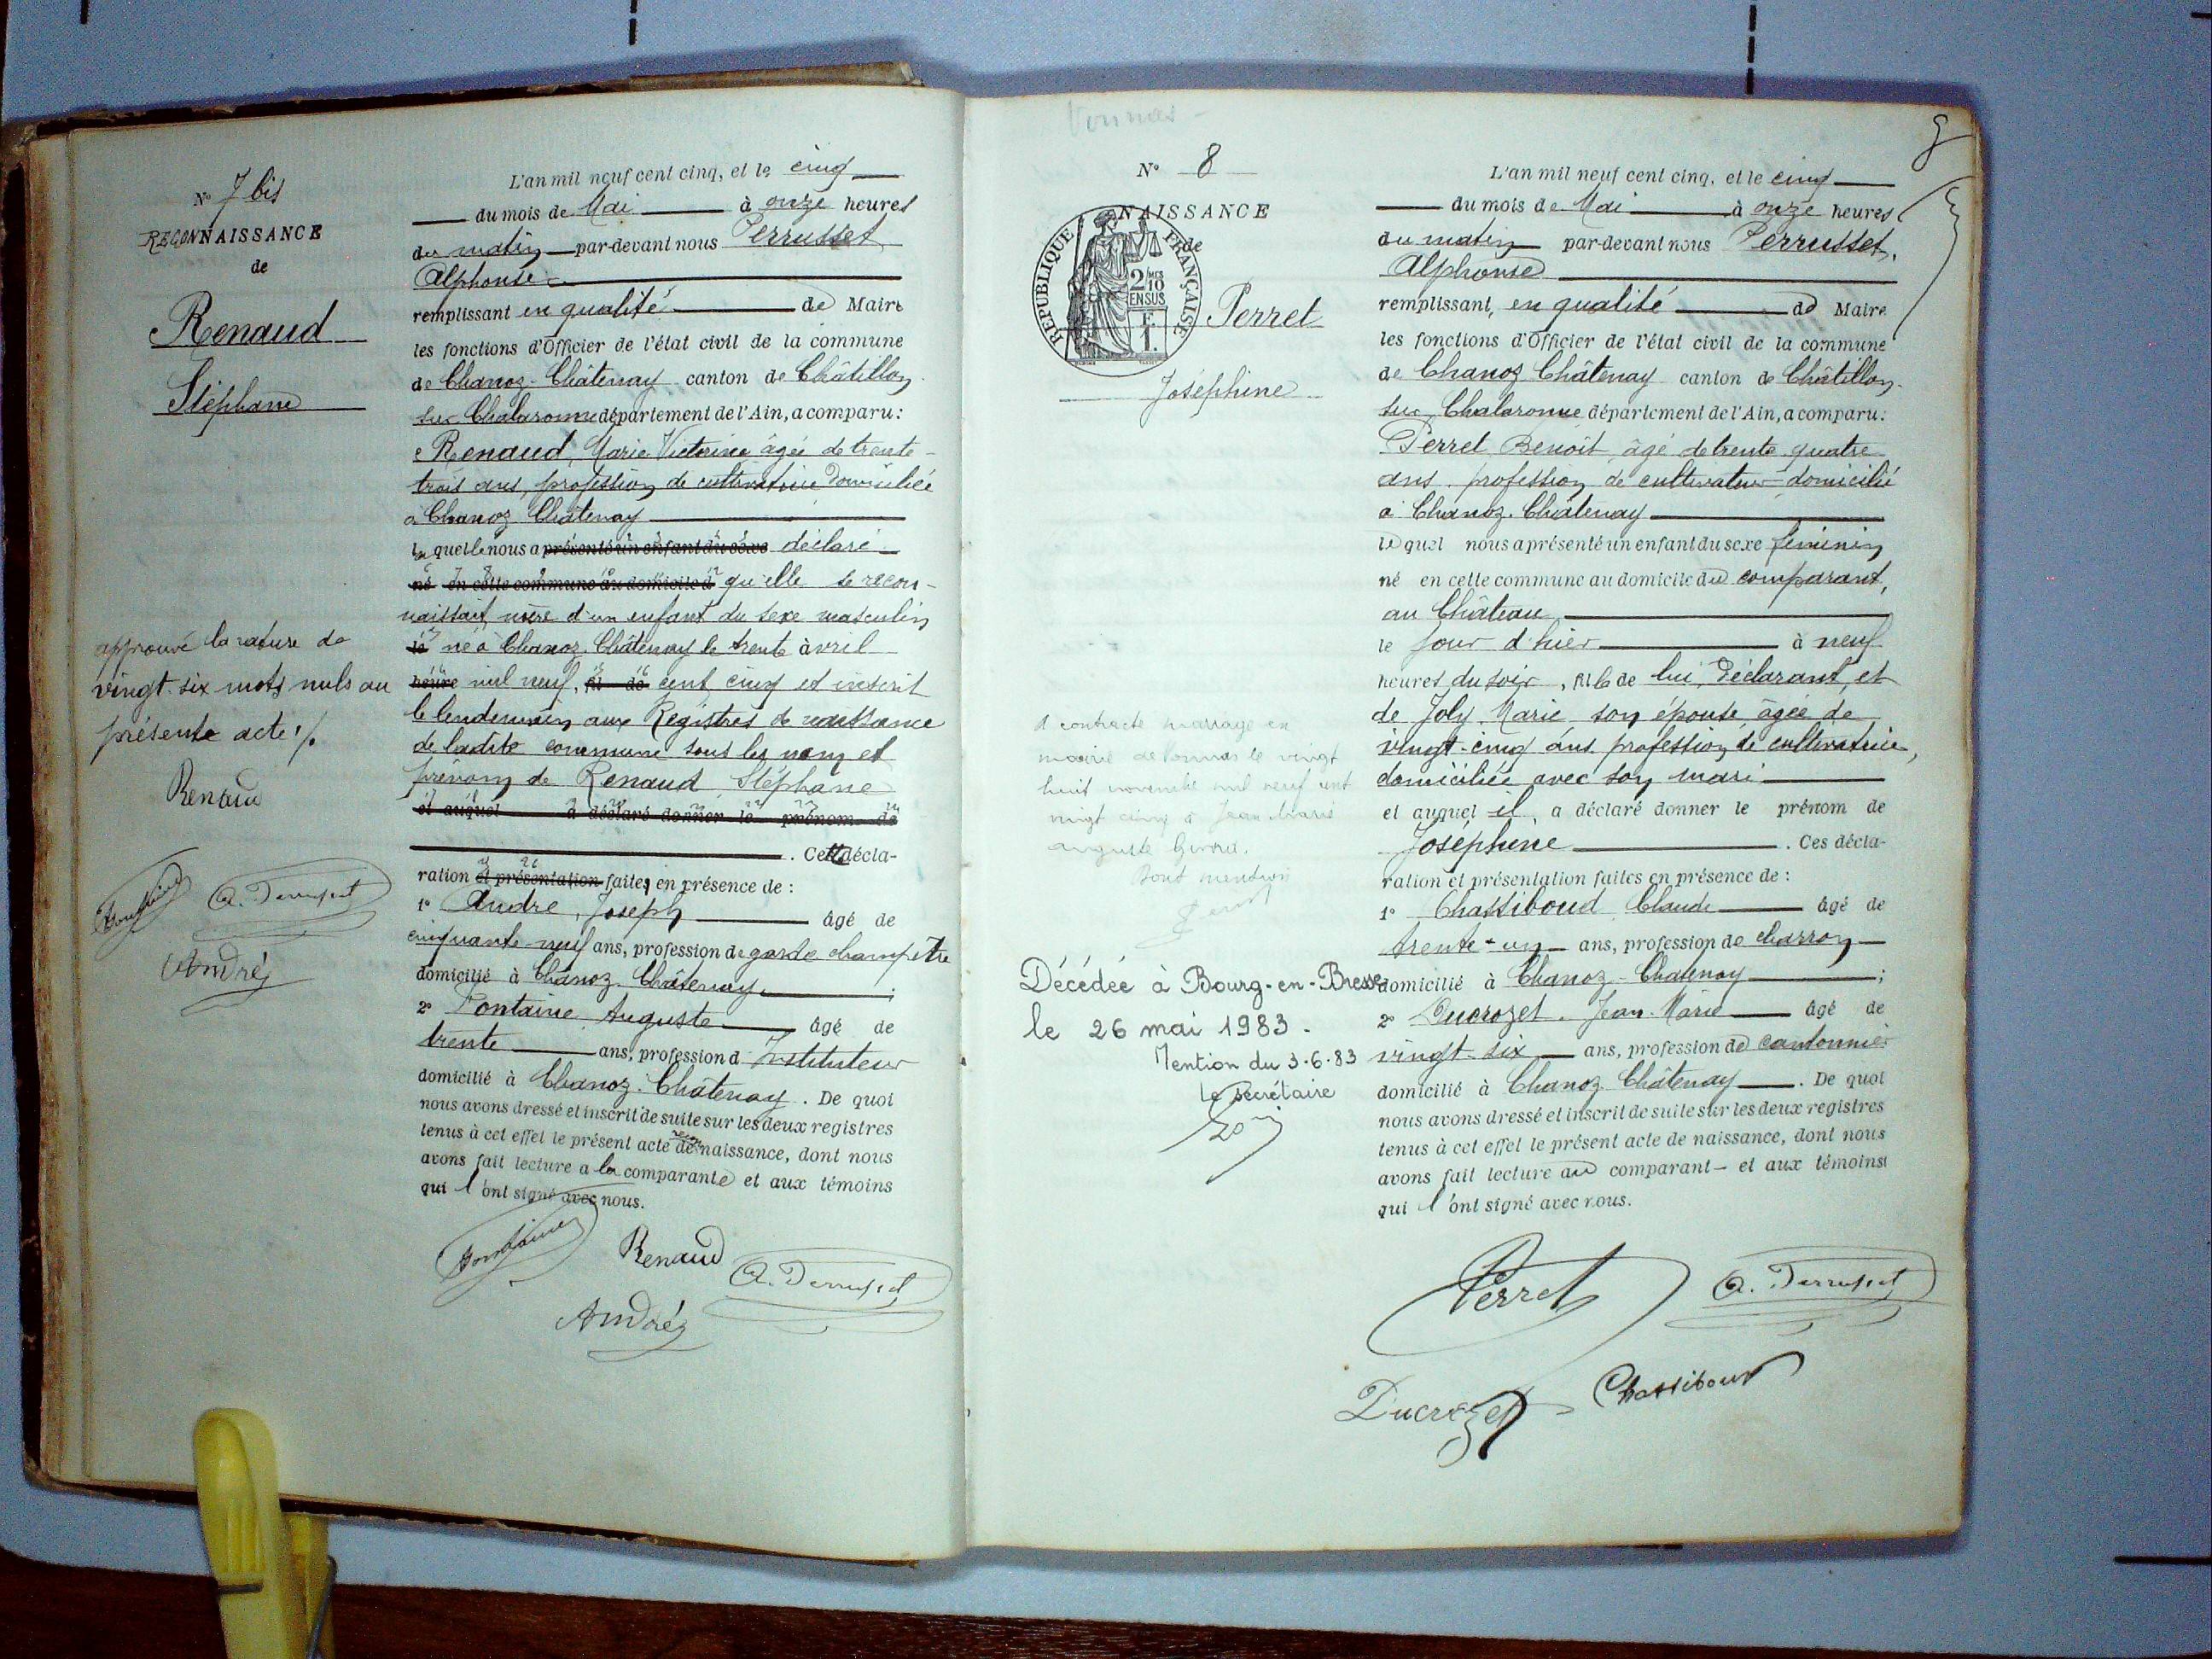 N° 7 bis
RECONNAISSANCE
de
Renaud
Stéphane
approuvé la rature de
vingt-six mots nuls au
présente acte ./.
Renaud
Fontaine A. Perrusset
André
L'an mil neuf cent cinq, et le cinq
du mois de Mai à onze heures
du matin par-devant nous Perrusset
Alphonse
remplissant en qualité de Maire
les fonctions d'Officier de l'état civil de la commune
de Chanoz-Châtenay canton de Châtillon
sur Chalaronne département de l'Ain, a comparu :
Renaud, Marie Victorine âgée de trente-
trois ans, profession de cultivatrice domiciliée
à Chanoz Châtenay
laquelle nous a présenté un enfant du sexe déclaré
né en cette commune au domicile d qu'elle se recon-
naissait mère d'un enfant du sexe masculin
le né à Chanoz Châtenay le trente avril
heure mil neuf, fil de cent cinq et inscrit
le lendemain aux Registres de naissance
de ladite commune sous les nom et
prénom de Renaud Stéphane
et auquel a déclaré donner le prénom de
. Cette décla-
ration et présentation faite, en présence de :
1° André, Joseph âgé de
cinquante-neuf ans, profession de garde champêtre
domicilié à Chanoz-Châtenay ;
2° Fontaine Auguste âgé de
trente ans, profession d'Instituteur
domicilié à Chanoz-Châtenay. De quoi
nous avons dressé et inscrit de suite sur les deux registres
tenus à cet effet le présent acte de naissance, dont nous
avons fait lecture à la comparante et aux témoins
qui l'ont signé avec nous.
Fontaine Renaud A. Perrusset
André
Vonnas
N° 8
NAISSANCE
de
REPUBLIQUE FRANÇAISE
2/10 EN SUS
1 F.
Perret
Joséphine
A contracté mariage en
mairie de Vonnas le vingt
huit novembre mil neuf cent
vingt cinq à Jean Marie
Auguste
Dont mention
Décédée à Bourg-en-Bresse
le 26 mai 1983.
Mention du 3-6-83
Le Secrétaire
8
L'an mil neuf cent cinq, et le cinq
du mois de Mai à onze heures
du matin par-devant nous Perrusset,
Alphonse
remplissant, en qualité de Maire
les fonctions d'Officier de l'état civil de la commune
de Chanoz Châtenay canton de Châtillon-
sur Chalaronne département de l'Ain, a comparu :
Perret Benoît âgé de trente-quatre
ans, profession de cultivateur domicilié
à Chanoz-Châtenay
lequel nous a présenté un enfant du sexe féminin
né en cette commune au domicile du comparant,
au Château
le jour d'hier à neuf
heures du soir, fille de lui, déclarant, et
de Joly Marie son épouse âgée de
vingt-cinq ans profession de cultivatrice,
domiciliée avec son mari
et auquel il a déclaré donner le prénom de
Joséphine . Ces décla-
ration et présentation faites en présence de :
1° Chassiboud Claude âgé de
trente-un ans, profession de charron
domicilié à Chanoz-Chatenay ;
2° Ducrozet Jean-Marie âgé de
vingt-six ans, profession de cantonnier
domicilié à Chanoz-Châtenay. De quoi
nous avons dressé et inscrit de suite sur les deux registres
tenus à cet effet le présent acte de naissance, dont nous
avons fait lecture au comparant et aux témoins
qui l'ont signé avec nous.
Perret A. Perrusset
Ducrozet Chassiboud